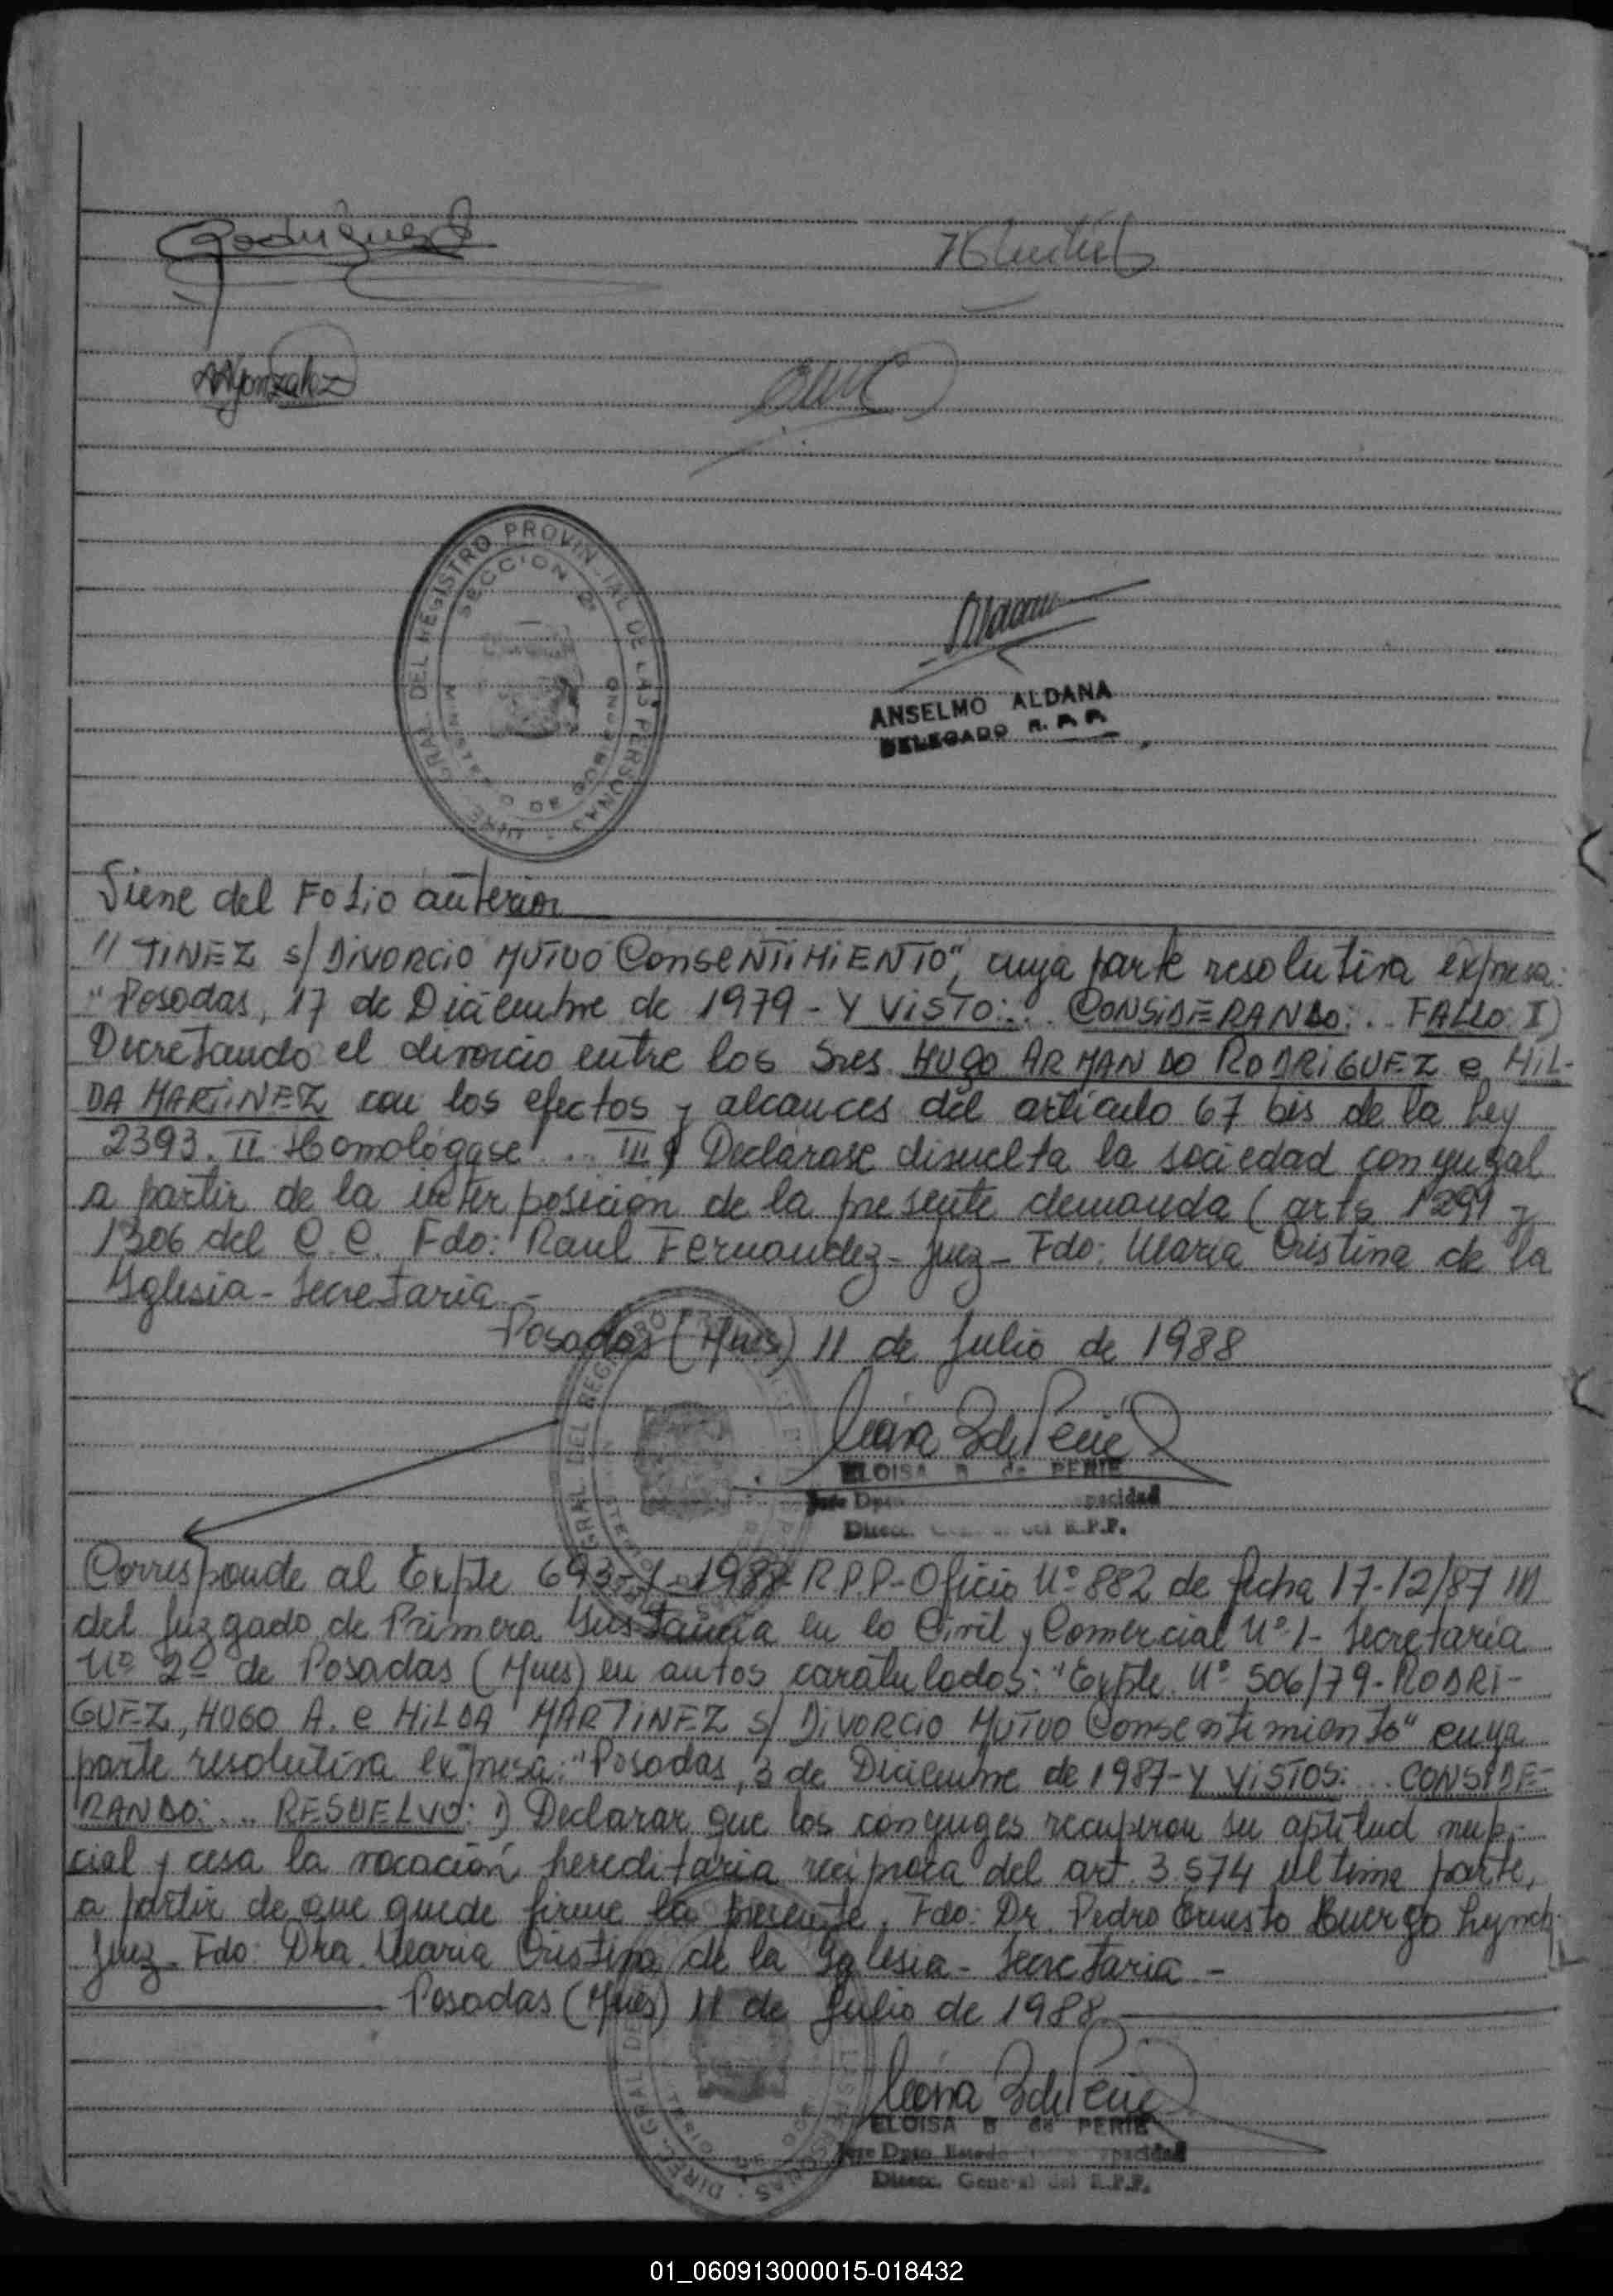 Rodriguez
AAgonzalez
DEL REGISTRO PROVINCIAL DE LAS PERSONAS
SECCION 2ª
ANSELMO ALDANA
DELEGADO R. P. P.
Viene del Folio anterior
"TINEZ s/ DIVORCIO MUTUO CONSENTIMIENTO", cuya parte resolutiva expresa:
"Posadas, 17 de Diciembre de 1979 - Y VISTO:... CONSIDERANDO:.. FALLO I)
Decretando el divorcio entre los Sres. HUGO ARMANDO RODRIGUEZ e HIL-
DA MARTINEZ con los efectos y alcances del artículo 67 bis de la Ley
2393. II Homológase... III) Declárase disuelta la sociedad conyugal
a partir de la interposición de la presente demanda (arts 1291 y
1306 del C.C. Fdo: Raul Fernandez - Juez - Fdo: Maria Cristina de la
Iglesia - Secretaria -
Posadas (Mnes) 11 de Julio de 1988
ELOISA B de PERIE
Jefe Dpto pacidad
Direcc. del R.P.P.
Corresponde al Expte 693-1-1988- R P P - Oficio Nº 882 de fecha 17-12/87
del Juzgado de Primera Instancia en lo Civil y Comercial Nº 1 - Secretaría
Nº 2º de Posadas (Mnes) en autos caratulados: "Expte. Nº 506/79 - RODRI-
GUEZ, HUGO A. e HILDA MARTINEZ s/ DIVORCIO MUTUO Consentimiento" cuya
parte resolutiva expresa: "Posadas, 3 de Diciembre de 1987 - Y VISTOS:... CONSIDE-
RANDO:... RESUELVO: 1) Declarar que los cónyuges recuperan su aptitud nup-
cial y cesa la vocación hereditaria recíproca del art. 3.574 ultima parte,
a partir de que quede firme la presente. Fdo: Dr. Pedro Ernesto Buergo Lynch
Juez - Fdo: Dra. Maria Cristina de la Iglesia - Secretaria -
Posadas (Mnes) 11 de Julio de 1988
ELOISA B de PERIE
Jefe Dpto. Estado pacidad
Direcc. General del R.P.P.
01_060913000015-018432